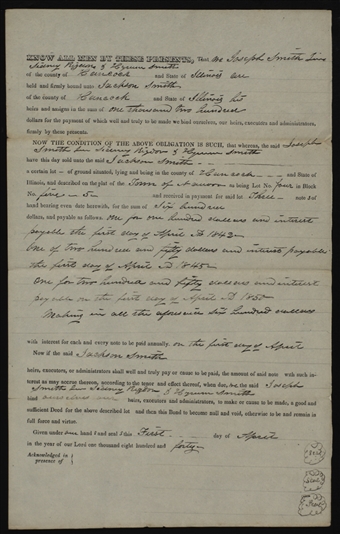 KNOW ALL MEN BY THESE PRESENTS, That we Joseph Smith Juno
Sidney Rigdon & Hyrum Smith
of the county of Hancock and State of Illinois are
held and firmly bound unto Jackson Smith
of the county of Hancock and State of Illinois his
heirs and assigns in the sum of One Thousand two hundred
dollars for the payment of which well and truly to be made we bind ourselves, our heirs, executors and administrators,
firmly by these presents.
NOW THE CONDITION OF THE ABOVE OBLIGATION IS SUCH, that whereas, the said Joseph
Smith Sidney Rigdon & Hyrum Smith
have this day sold unto the said Jackson Smith
a certain lot of ground situated, lying and being in the county of Hancock and State of
Illinois, and described on the plat of the Town of Nauvoo as being Lot No. four in Block
No. five and received in payment for said lot Three notes of
hand bearing even date herewith, for the sum of Six hundred
dollars, and payable as follows: one for one hundred dollars and interest
payable the first day of April AD 1842
One of two hundred and fifty dollars and interest payable
the first day of April AD 1845
One for two hundred and fifty dollars and interest
payable on the first day of April AD 1850
Making in all the aforesaid six hundred dollars
with interest for each and every note to be paid annually. on the first day of April
Now if the said Jackson Smith
heirs, executors, or administrators, shall well and truly pay or cause to be paid, the amount of said note with such in-
terest as may accrue thereon, according to the tenor and effect thereof, when due, we the said Joseph
Smith Sidney Rigdon & Hyrum Smith
bind ourselves our heirs, executors and administrators, to make or cause to be made, a good and
sufficient Deed for the above described lot and then this Bond to become null and void, otherwise to be and remain in
full force and virtue.
Given under our hand and seal this First day of April
in the year of our Lord one thousand eight hundred and forty
Acknowledged in
presence of
Seal